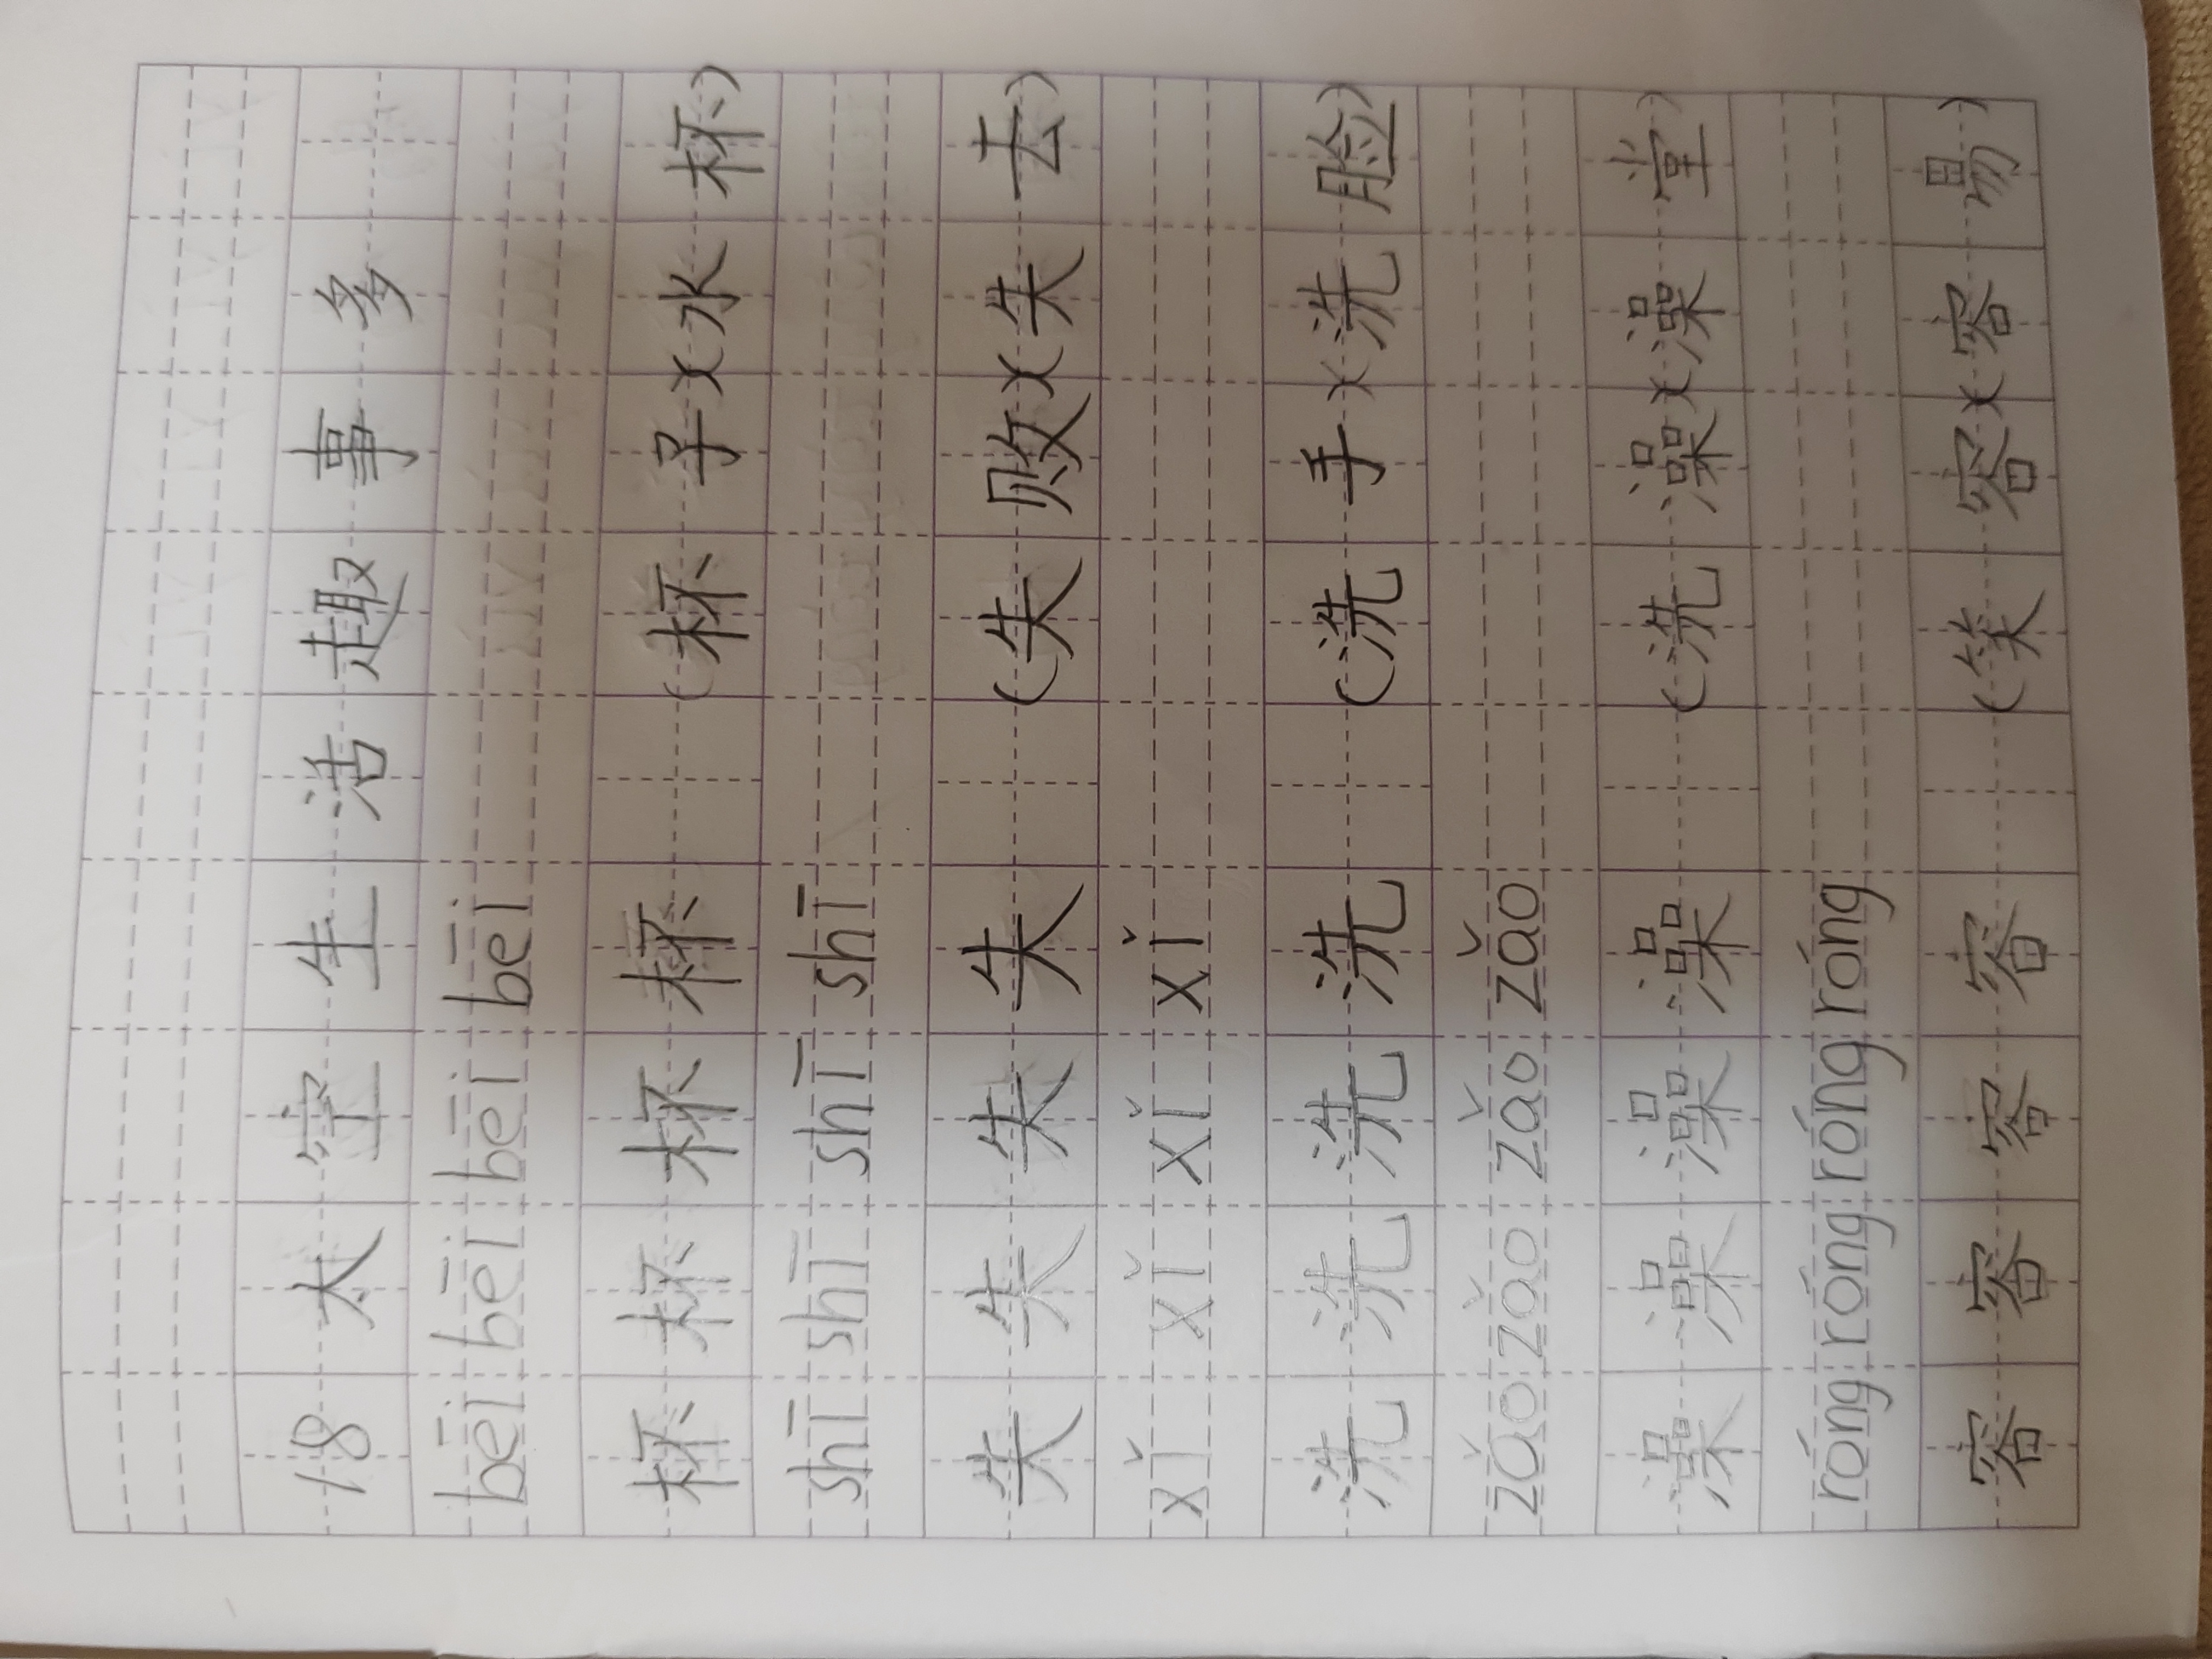 18太空生活趣事多
bēi bēi bēi bēi
杯杯杯杯 (杯子)(水杯)
shī shī shī shī
失失失失 (失败)(失去)
xǐ xǐ xǐ xǐ
洗洗洗洗 (洗手)(洗脸)
zǎo zǎo zǎo zǎo
澡澡澡澡 (洗澡)(澡堂)
róng róng róng róng
容容容容 (笑容)(容易)